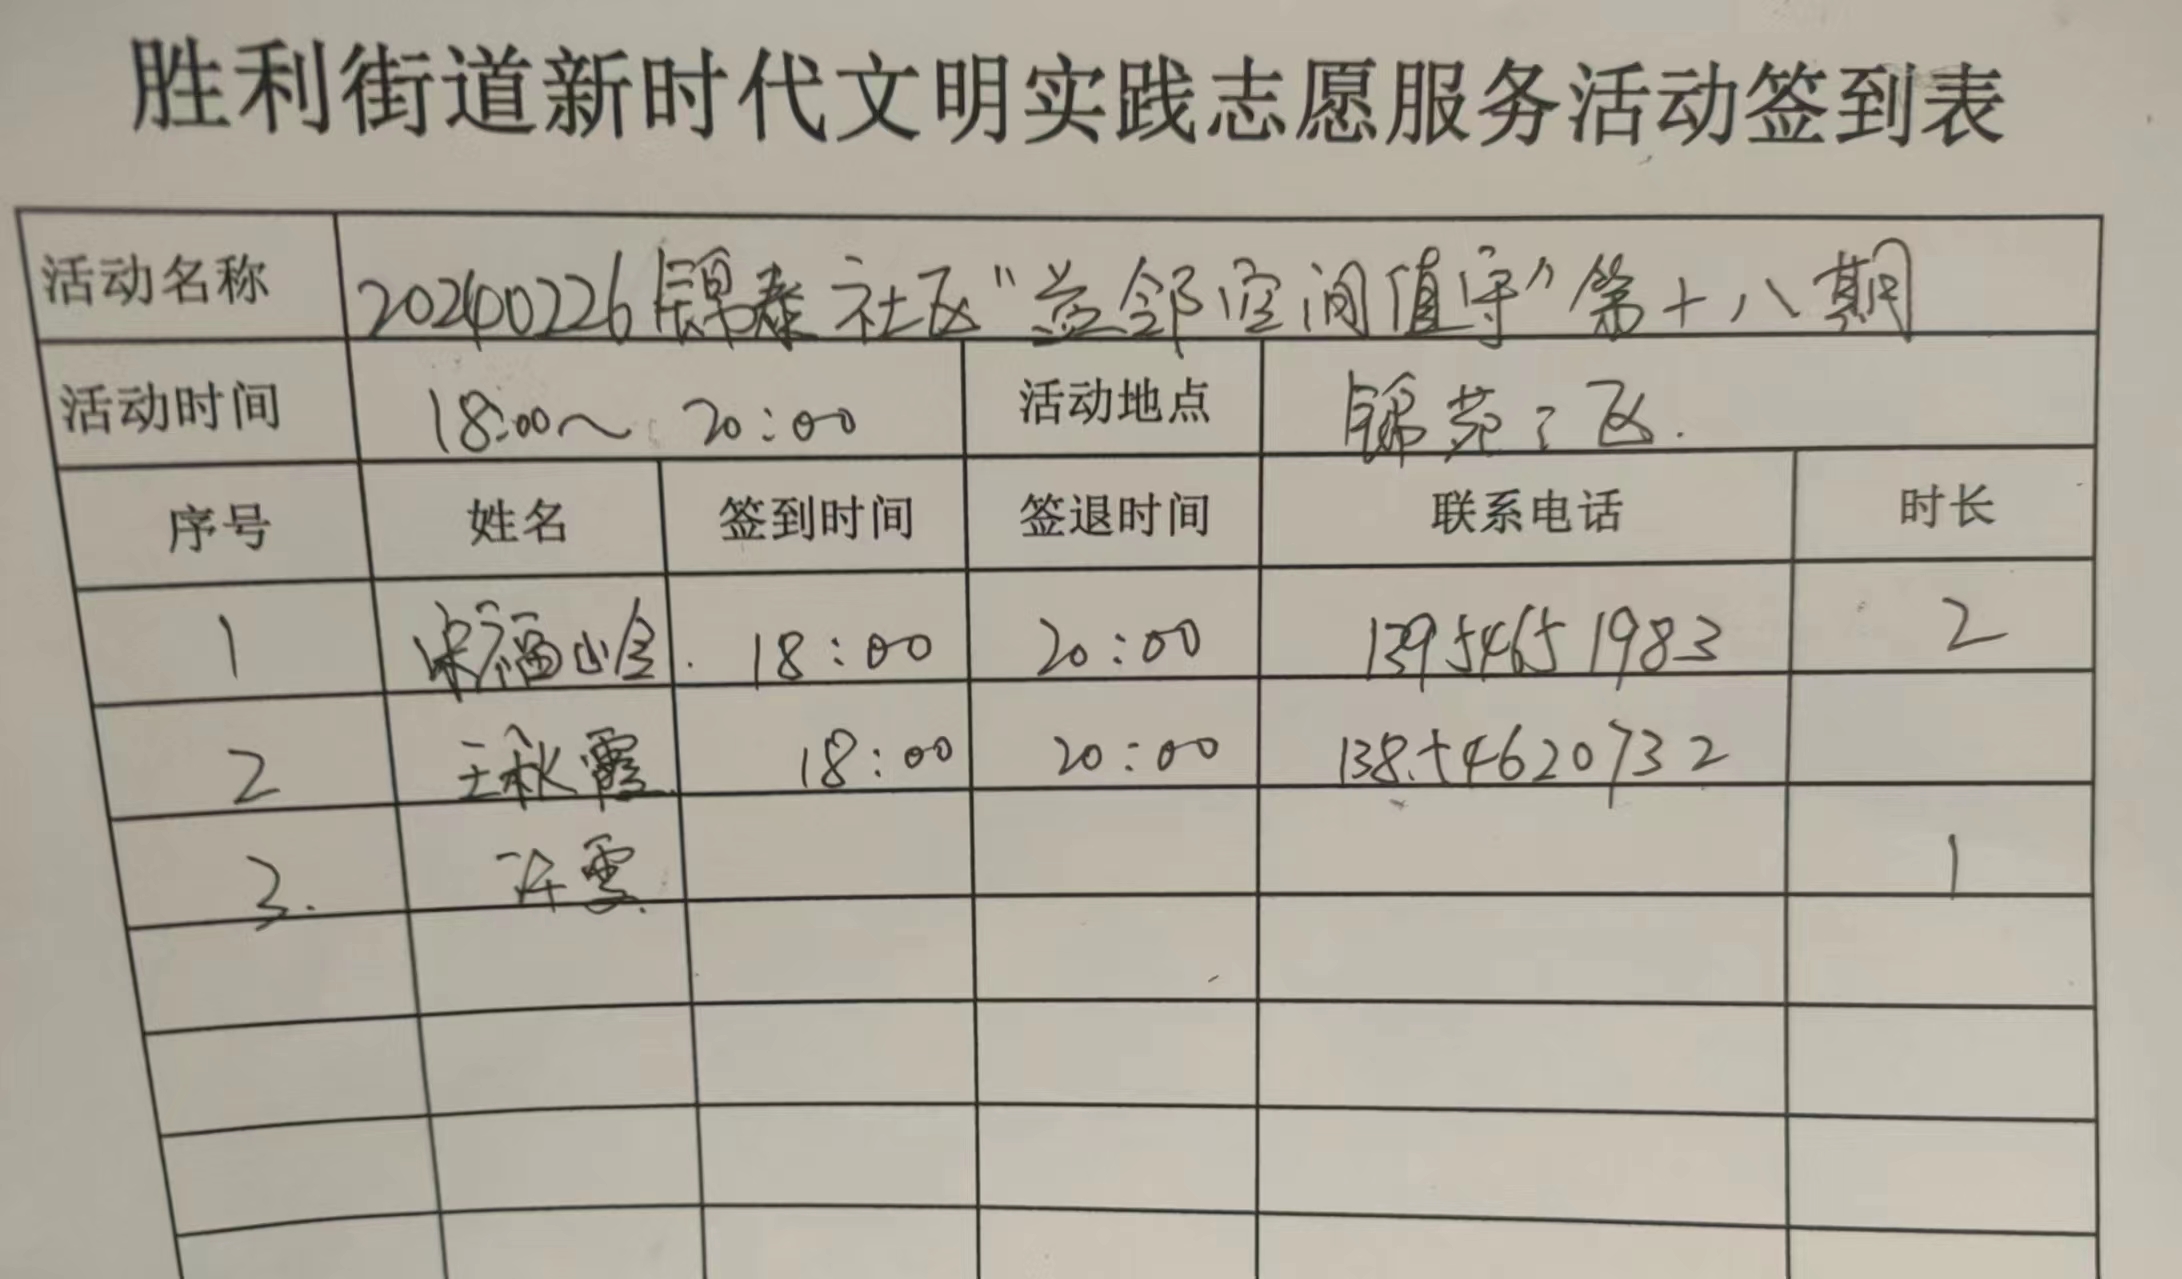 胜利街道新时代文明实践志愿服务活动签到表
活动名称 20240226锦泰社区“益邻空间值守”第十八期
活动时间 18:00~20:00 活动地点 锦苑三区.
序号 姓名 签到时间 签退时间 联系电话 时长
1 18:00 20:00 13954651983 2
2 王秋霞 18:00 20:00 13854620732
3. 许雪 1